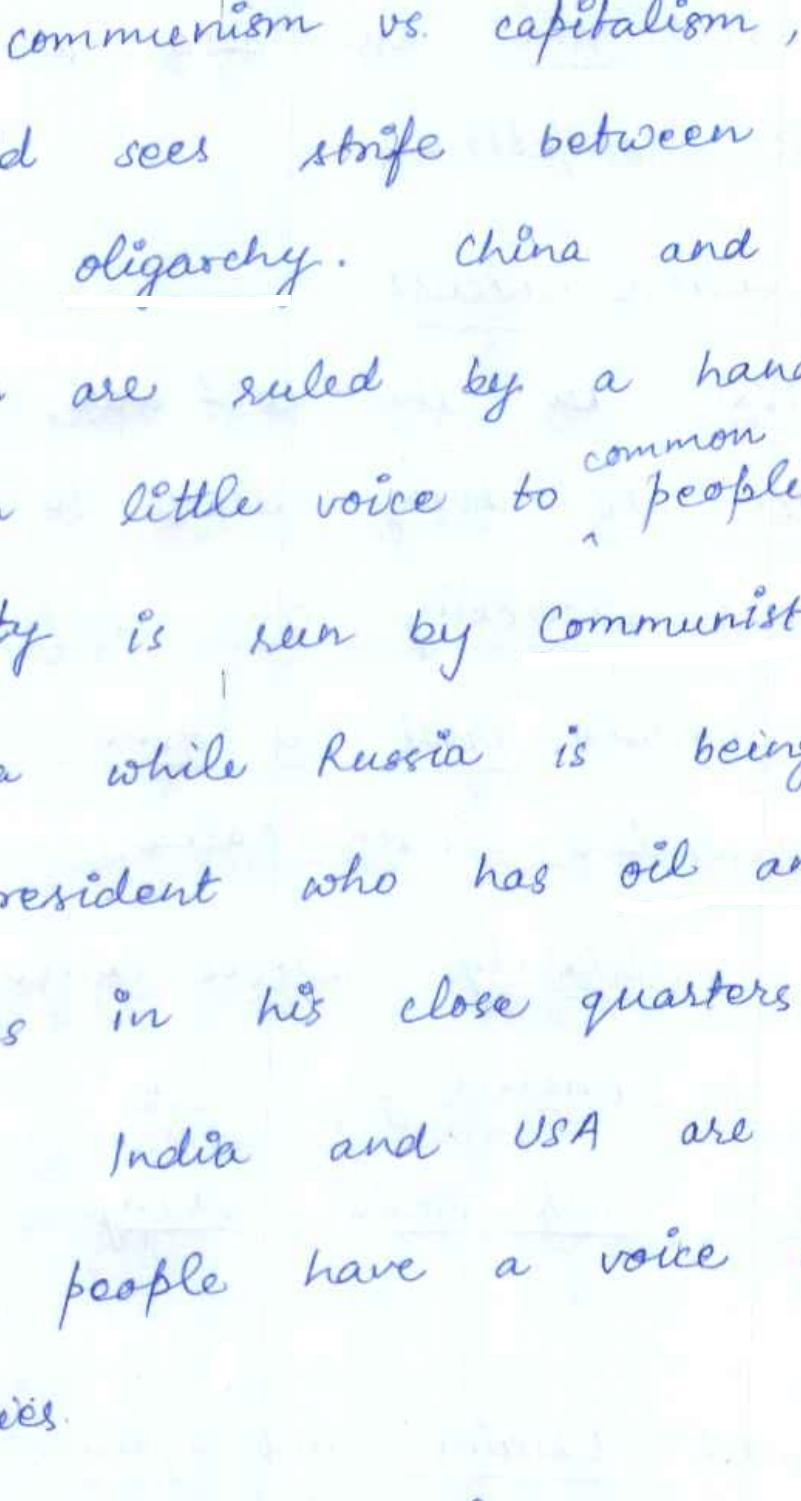 communism vs. capitalism,
d sees strife between
oligarchy. China and
are ruled by a hand
little voice to common people
ty is run by Communist
a while Russia is being
resident who has oil an
s in his close quarters
India and USA are
people have a voice
ies.